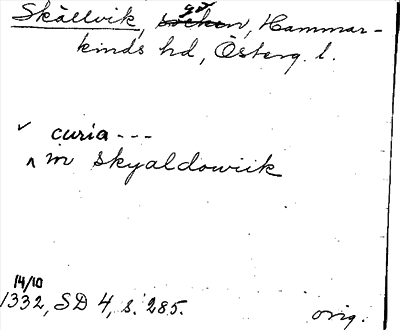 Skällvik, gd, Hammar-
kinds hd, Österg. l.
√ curia ---
^ in skyaldowiik
14/10
1332, SD 4, s. 285.
orig.